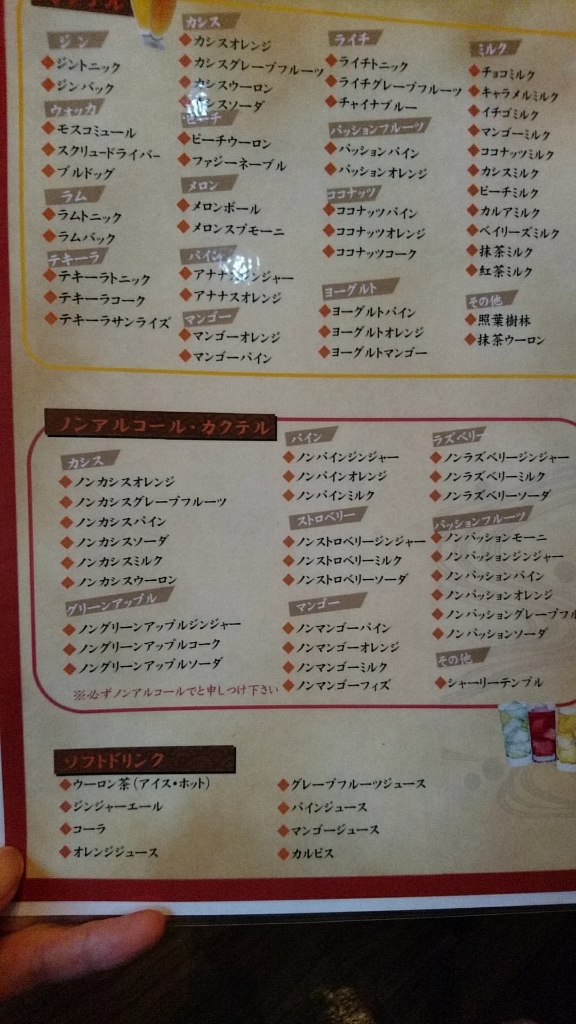 ジン
ジントニック
ジンバック
ウォッカ
モスコミュール
スクリュードライバー
ブルドッグ
ラム
ラムトニック
ラムバック
テキーラ
テキーラトニック
テキーラコーク
テキーラサンライズ
カシス
カシスオレンジ
カシスグレープフルーツ
カシスウーロン
シスソーダ
ピーチ
ピーチウーロン
ファジーネーブル
メロン
メロンボール
メロンスプモーニ
パイン
アナナスジンジャー
アナナスオレンジ
マンゴー
マンゴーオレンジ
マンゴーパイン
ライチ
ライチトニック
ライチグレープフルーツ
チャイナブルー
パッションフルーツ
パッションパイン
パッションオレンジ
ココナッツ
ココナッツパイン
ココナッツオレンジ
ココナッツコーク
ヨーグルト
ヨーグルトパイン
ヨーグルトオレンジ
ヨーグルトマンゴー
ミルク
チョコミルク
キャラメルミルク
イチゴミルク
マンゴーミルク
ココナッツミルク
カシスミルク
ピーチミルク
カルアミルク
ベイリーズミルク
抹茶ミルク
紅茶ミルク
その他
照葉樹林
抹茶ウーロン
ノンアルコール・カクテル
カシス
ノンカシスオレンジ
ノンカシスグレープフルーツ
ノンカシスパイン
ノンカシスソーダ
ノンカシスミルク
ノンカシスウーロン
グリーンアップル
ノングリーンアップルジンジャー
ノングリーンアップルコーク
ノングリーンアップルソーダ
※必ずノンアルコールでと申しつけ下さい
パイン
ノンパインジンジャー
ノンパインオレンジ
ノンパインミルク
ストロベリー
ノンストロベリージンジャー
ノンストロベリーミルク
ノンストロベリーソーダ
マンゴー
ノンマンゴーパイン
ノンマンゴーオレンジ
ノンマンゴーミルク
ノンマンゴーフィズ
ラズベリー
ノンラズベリージンジャー
ノンラズベリーミルク
ノンラズベリーソーダ
パッションフルーツ
ノンパッションモーニ
ノンパッションジンジャー
ノンパッションパイン
ノンパッションオレンジ
ノンパッショングレープフル
ノンパッションソーダ
その他
シャーリーテンプル
ソフトドリンク
ウーロン茶(アイス・ホット)
ジンジャーエール
コーラ
オレンジジュース
グレープフルーツジュース
パインジュース
マンゴージュース
カルピス